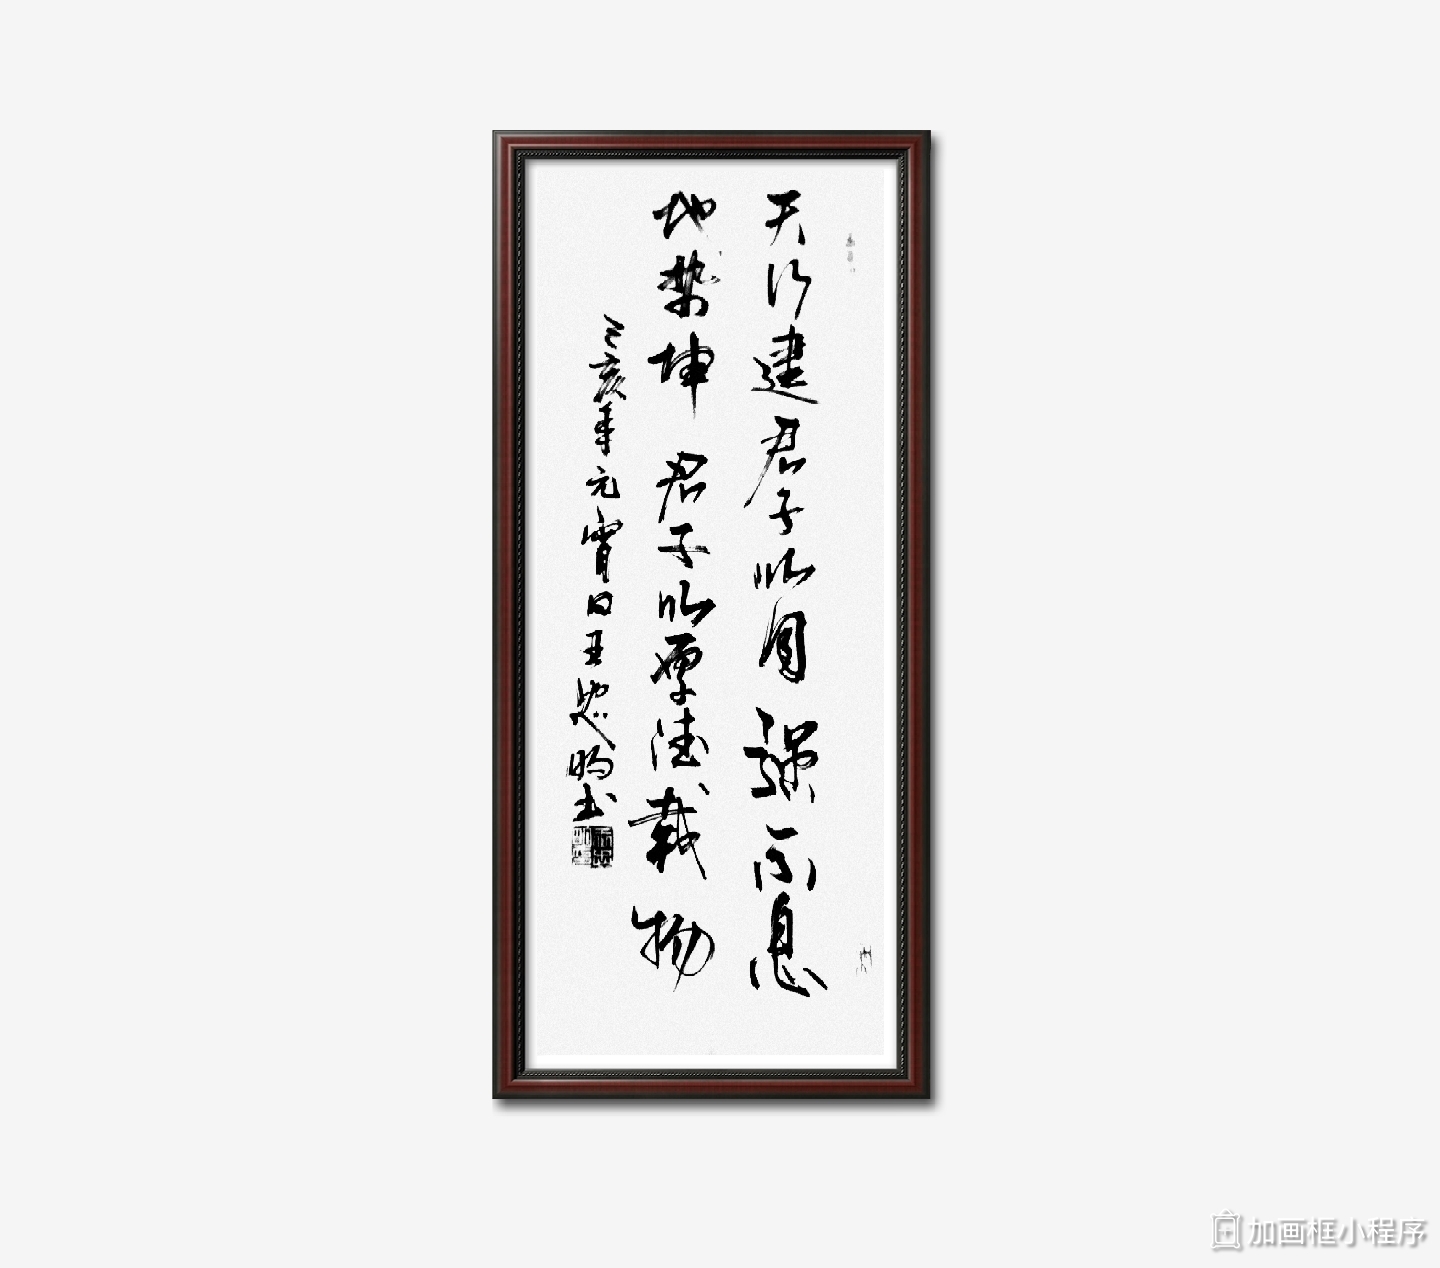 天行建君子以自强不息
地势坤君子以厚德载物
己亥年元宵日王忠明书
加画框小程序